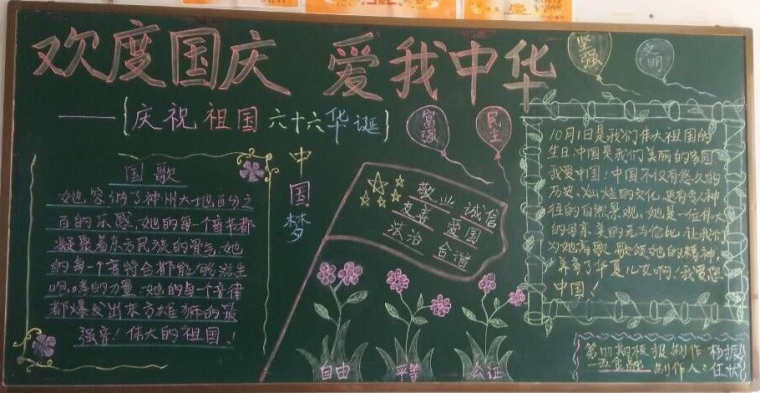 欢度国庆 爱我中华
——{庆祝祖国六十六华诞}
坚强
文明
富强
民主
中国梦
国歌
她容纳了神州大地百分之
百的乐感,她的每一个音节都
凝聚着东方民族的骨气,她
的每一个音符会都能够滋生
的力量,她的每一个音律
都爆发出东方雄狮的最
强音!伟大的祖国!
敬业 诚信
友善 爱国
法治 合谐
自由
平等
公证
10月1日是我们伟大祖国的
生日,中国是我们美丽的家园
我爱中国:中国不仅有悠久的
历史,灿烂的文化,更有令人神
往的自然景观,她是一位伟大
的母亲,美的无与伦比,让我们
为她高歌,歌颂她的精神,
养育了华夏儿女啊!我要您
中国!
期板报制作
制作人: